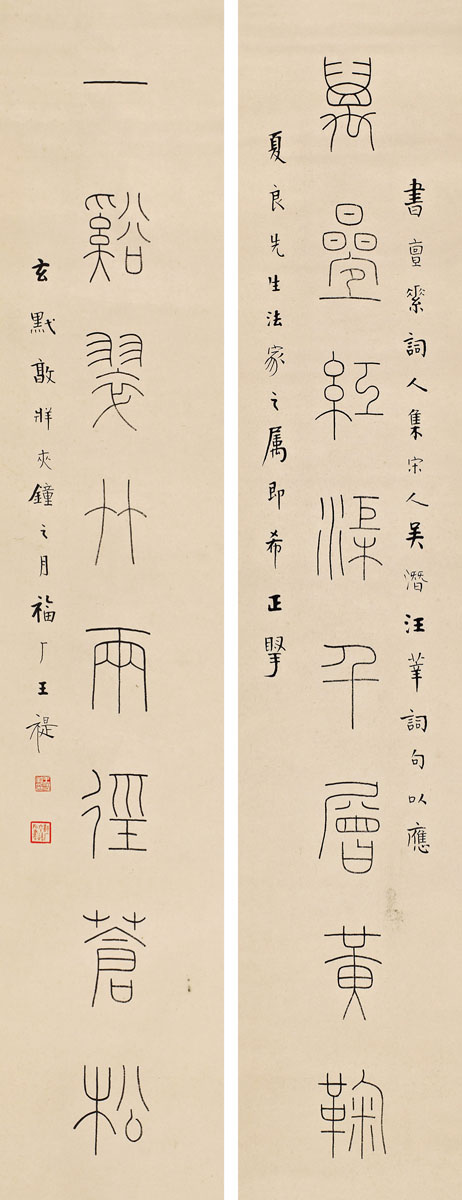 書亶素詞人集宋人吳潛汪莘詞句以應
萬疊紅渠千層黃鞠
夏良先生法家之属即希正掔
一谿翠竹兩徑蒼松
玄黓敦牂夾鐘之月福厂王禔